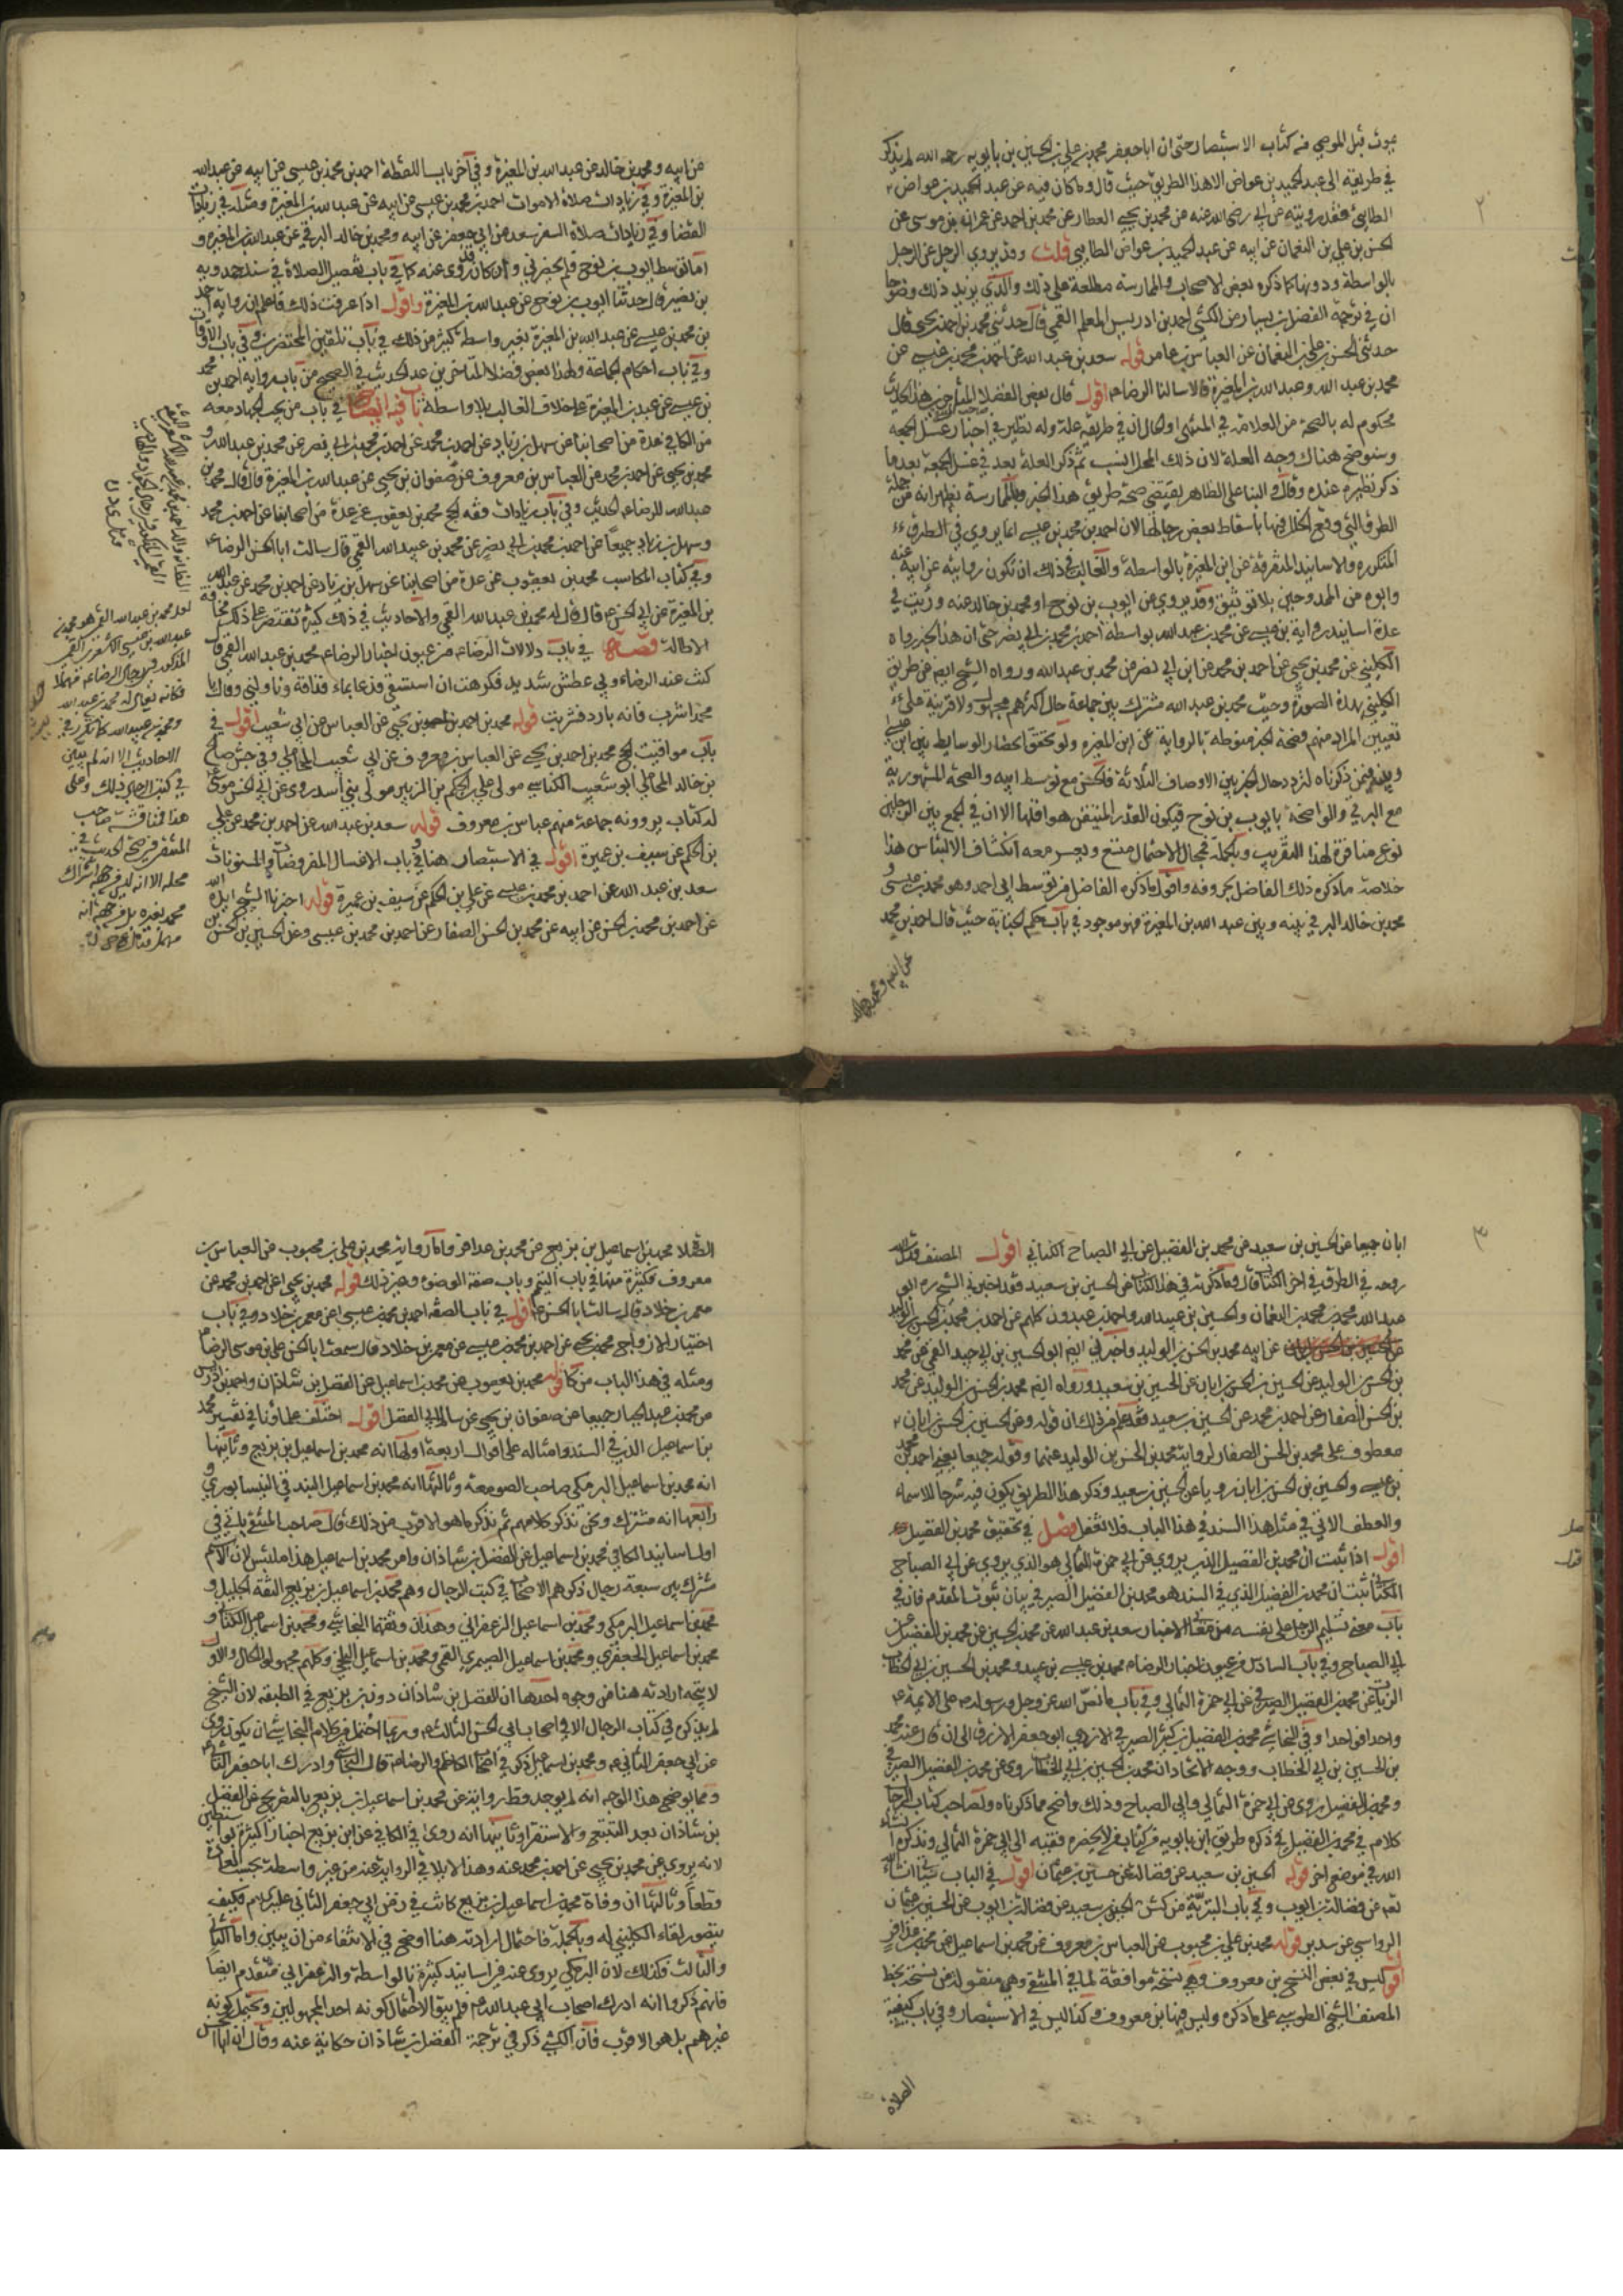 في طريقه الى عبد الحميد بن عواض الا هذا الطريق حيث قال وما كان فيه عن عبد الحميد بن عواض
الطايي فقد رويته عن ابي رضى الله عنه عن محمد بن يحيى العطار عن محمد بن احمد عن عمران بن موسى عن
الحسن بن علي بن النعمان عن ابيه عن عبد الحميد بن عواض الطايي قلت وقد يروي الرجل عن الرجل
بالواسطة ودونها كما ذكره بعض الاصحاب والممارسة مطلعة على ذلك والذي يزيد ذلك وضوحا
ان في ترجمة الفضل بن يسار من الكشي احمد بن ادريس المعلم القمي قال حدثني محمد بن احمد بن يحيى قال
حدثني الحسن بن علي بن النعمان عن العباس بن عامر قوله سعد بن عبد الله عن احمد بن محمد بن عيسى عن
محمد بن عبد الله وعبد الله بن المغيرة قالا سالنا الرضا ع اقول قال بعض الفضلا المتاخرين هذا الحديث
محكوم له بالصحة من العلامة في المنتهى والحال ان في طريقه علة وله نظير في اخبار غسل الجمعة
وسنوضح هناك وجه العلة لان ذلك المحل انسب ثم ذكر العلة بعد في غسل الجمعة بعد ما
ذكر نظيره عنده وقال والبنا على الظاهر يقتضى صحة طريق هذا الخبر وبالممارسة يظهر انه من جملة
الطرق التي وقع الخلل فيها باسقاط بعض رجالها لان احمد بن محمد بن عيسى انما يروي في الطرق
المتكرره والاسانيد المتفرقة عن ابن المغيرة بالواسطة والغالب في ذلك ان تكون روايته عن ابيه عنه
وابوه من الممدوحين بلا توثيق وقد يروي عن ايوب بن نوح او محمد بن خالد عنه ورئيت في
عدة اسانيد رواية بن عيسى عن محمد بن عبد الله بواسطة احمد بن محمد بن ابي نصر حتى ان هذا الخبر رواه
الكليني عن محمد بن يحيى عن احمد بن محمد عن ابن ابي نصر عن محمد بن عبد الله ورواه الشيخ ايضا عن طريق
الكليني بهذه الصورة وحيث محمد بن عبد الله مشترك بين جماعة حال اكثرهم مجهول ولا قرينة على
تعيين المراد منهم فصحة الخبر منوطة بالرواية عن ابن المغيره ولو تحقق انحصار الوسايط بين ابن عيسى
وبينه فيمن ذكرناه لتردد حال الخبر بين الاوصاف الثلاثة فالحسن مع توسط ابيه والصحة المشهورية
مع البرقي والواضحة بايوب بن نوح فيكون القدر المتيقن هو اقلها الا ان في الجمع بين الرجلين
نوع منافرة لهذا التقريب وبالجملة فمجال الاحتمال متسع ويعسر معه انكشاف الالتباس هذا
خلاصة ما ذكره ذلك الفاضل بحروفه واقول ما ذكره الفاضل من توسط ابي احمد وهو محمد بن عيسى و
محمد بن خالد البرقي بينه وبين عبد الله بن المغيرة فهو موجود في باب حكم الجنابة حيث قال احمد بن محمد
عن ابيه ومحمد بن خالد
عن ابيه ومحمد بن خالد عن عبد الله بن المغيرة وفي آخر باب اللقطة احمد بن محمد بن عيسى عن ابيه عن عبد الله
بن المغيرة وفي زيادات صلاة الاموات احمد بن محمد بن عيسى عن ابيه عن عبد الله بن المغيرة ومثله في زيادات
القضا وفي زيادات صلاة السفر سعد عن ابي جعفر عن ابيه ومحمد بن خالد البرقي عن عبد الله بن المغيرة و
اما توسط ايوب بن نوح فلم يحضرني وان كان قد روى عنه كما في باب تفصيل الصلاة في سند حمدويه
بن نصير قال حدثنا ايوب بن نوح عن عبد الله بن المغيرة واقول اذا عرفت ذلك فاعلم ان رواية احمد
بن محمد بن عيسى عن عبد الله بن المغيرة بغير واسطة كثير من ذلك في باب تلقين المحتضرين وفي باب الاوقات
وفي باب احكام الجماعة ولهذا بعض فضلاء المتاخرين عد الحديث في الصحيح من باب رواية احمد بن محمد
بن عيسى عن عبد الله بن المغيرة على خلاف الغالب بلا واسطة
من الكافي عدة من اصحابنا عن سهل بن زياد عن احمد بن محمد عن احمد بن محمد بن ابي نصر عن محمد بن عبد الله و
محمد بن يحيى عن احمد بن محمد عن العباس بن معروف عن صفوان بن يحيى عن عبد الله بن المغيرة قال قال محمد بن
عبد الله للرضا ع الحديث وفي باب زيادات فقه الحج محمد بن يعقوب عن عدة من اصحابنا عن احمد بن محمد
وسهل بن زياد جميعا عن احمد بن محمد بن ابي نصر عن محمد بن عبد الله القمي قال سالت ابا الحسن الرضا ع
وفي كتاب المكاسب محمد بن يعقوب عن عدة من اصحابنا عن سهل بن زياد عن احمد بن محمد عن عبد الله
بن المغيرة عن ابي الحسن ع قال قال له محمد بن عبد الله القمي والاحاديث في ذلك كثيرة نقتصر على ذلك مخافة
الاطالة في باب دلالات الرضا ع من عيون اخبار الرضا ع محمد بن عبد الله القمي قال
كنت عند الرضا ع وبي عطش شديد فكرهت ان استسقي فدعا بماء فذاقه وناولني وقال يا
محمد اشرب فانه بارد فشربت قوله محمد بن احمد بن يحيى عن العباس عن ابي شعيب اقول في
باب مواقيت الحج محمد بن احمد بن يحيى عن العباس بن معروف عن ابي شعيب المحاملي وفي جش صالح
بن خالد المحاملي ابو شعيب الكناسي مولى علي بن الحكم بن الزبير مولى بني اسد روى عن ابي الحسن موسى ع
له كتاب يروونه جماعة منهم عباس بن معروف قوله سعد بن عبد الله عن احمد بن محمد عن علي
بن الحكم عن سيف بن عميرة اقول في الاستبصار هنا وفي باب الاغسال المفروضات والمسنونات
سعد بن عبد الله عن احمد بن محمد بن عيسى عن علي بن الحكم عن سيف بن عميرة قوله اخبرنا الشيخ ايده الله
عن احمد بن محمد بن الحسن عن ابيه عن محمد بن الحسن الصفار عن احمد بن محمد بن عيسى وعن الحسين بن الحسن بن
لعل محمد بن عبد الله القمي هو محمد بن
عبد الله بن عيسى الاشعري القمي
المذكور في رجال الرضا ع مهملا
ابان جميعا عن الحسين بن سعيد عن محمد بن الفضيل عن ابي الصباح الكناني اقول المصنف قدس الله
روحه في الطرق في اخر الكتاب قال وما ذكرته في هذا الكتاب عن الحسين بن سعيد فقد اخبرني الشيخ ره ابو
عبد الله محمد بن محمد بن النعمان والحسين بن عبيد الله واحمد بن عبدون كلهم عن احمد بن محمد بن الحسن بن الوليد
عن ابيه محمد بن الحسن بن الوليد واخبرني ايضا ابو الحسين بن ابي جيد القمي عن محمد
بن الحسن بن الوليد عن الحسين بن الحسن بن ابان عن الحسين بن سعيد ورواه ايضا محمد بن الحسن بن الوليد عن محمد
بن الحسن الصفار عن احمد بن محمد عن الحسين بن سعيد فقد علم من ذلك ان قوله وعن الحسين بن الحسن بن ابان
معطوف على محمد بن الحسن الصفار لرواية محمد بن الحسن بن الوليد عنهما وقوله جميعا يعني احمد بن محمد
بن عيسى والحسين بن الحسن بن ابان رويا عن الحسين بن سعيد وذكر هذا الطريق يكون فيه شرحا للاسماء
والعطف الاتي في مثل هذا السند في هذا الباب فلا تغفل فصل في تحقيق محمد بن الفضيل
اقول اذا ثبت ان محمد بن الفضيل الذي يروي عن ابي حمزة الثمالي هو الذي يروي عن ابي الصباح
الكناني ثبت ان محمد بن الفضيل الذي في السند هو محمد بن الفضيل الصيرفي بيان ثبوت المقدم فان في
باب معنى تسليم الرجل على نفسه من معاني الاخبار سعد بن عبد الله عن محمد بن الحسين عن محمد بن الفضيل عن
ابي الصباح وفي باب السادس من عيون اخبار الرضا ع محمد بن عيسى بن عبيد ومحمد بن الحسين بن ابي الخطاب
الزيات عن محمد بن الفضيل الصيرفي عن ابي حمزة الثمالي وفي باب ما نص الله عز وجل ورسوله ص على الائمة ع
واحدا فواحدا وفي النجاشي محمد بن الفضيل بن كثير الصيرفي الازدي ابو جعفر الازرق الى ان قال عنه محمد
بن الحسين بن ابي الخطاب ووجه الاتحاد ان محمد بن الحسين بن ابي الخطاب روى عن محمد بن الفضيل الصيرفي
ومحمد بن الفضيل يروي عن ابي حمزة الثمالي وابي الصباح وذلك واضح مما ذكرناه ولصاحب كتاب الرجال
كلام في محمد بن الفضيل في ذكره طريق ابن بابويه في كتاب من لا يحضره فقيه الى ابي حمزة الثمالي ونذكره انشاء
الله في موضع اخر قوله الحسين بن سعيد عن فضالة عن حسين بن عثمان اقول في الباب
نعم عن فضالة بن ايوب وفي باب البترية من كش الحسين بن سعيد عن فضالة بن ايوب عن الحسين بن عثمان
الرواسي عن سدير قوله محمد بن علي بن محبوب عن العباس بن معروف عن محمد بن اسماعيل عن محمد بن عذافر
اقول ليس في بعض النسخ بن معروف وهي نسخة موافقة لما في المنتقى وهي منقولة من نسخة بخط
المصنف الشيخ الطوسي على ما ذكره وليس فيها ابن معروف وكذا ليس في الاستبصار وفي باب كيفية
الصلاة
الصلاة محمد بن اسماعيل بن بزيع عن محمد بن عذافر واما رواية محمد بن علي بن محبوب عن العباس بن
معروف فكثيرة منها في باب التيمم وباب صفة الوضوء وغير ذلك قوله محمد بن يحيى عن احمد بن محمد عن
معمر بن خلاد قال سالت ابا الحسن ع اقول في باب الصفة احمد بن محمد بن عيسى عن معمر بن خلاد وفي باب
اختيار الازواج محمد بن يحيى عن احمد بن محمد بن عيسى عن معمر بن خلاد قال سمعت ابا الحسن علي بن موسى الرضا
ومثله في هذا الباب من كا قوله محمد بن يعقوب عن محمد بن اسماعيل عن الفضل بن شاذان واحمد بن ادريس
عن محمد بن عبد الجبار جميعا عن صفوان بن يحيى عن سالم ابي الفضل اقول اختلف علماؤنا في تفسير محمد
بن اسماعيل الذي في السند وامثاله على اقوال اربعة اولها انه محمد بن اسماعيل بن بزيع وثانيها
انه محمد بن اسماعيل البرمكي صاحب الصومعة وثالثها انه محمد بن اسماعيل البندقي النيسابوري و
رابعها انه مشترك ونحن نذكر كلامهم ثم نذكر ما هو الاقرب من ذلك قال صاحب المنتقى ياتي في
اول اسانيد الكافي محمد بن اسماعيل عن الفضل بن شاذان وامر محمد بن اسماعيل هذا ملتبس لان الاسم
مشترك بين سبعة رجال ذكرهم الاصحاب في كتب الرجال وهم محمد بن اسماعيل بن بزيع الثقة الجليل و
محمد بن اسماعيل البرمكي ومحمد بن اسماعيل الزعفراني وهذان وثقهما النجاشي ومحمد بن اسماعيل الكناني و
محمد بن اسماعيل الجعفري ومحمد بن اسماعيل الصيمري القمي ومحمد بن اسماعيل البلخي وكلهم مجهولوا الحال والاول
لا يتجه ارادته هنا من وجوه احدها ان الفضل بن شاذان دون بن بزيع في الطبقة لان الشيخ
لم يذكره في كتاب الرجال الا في اصحاب ابي الحسن الثالث ع وربما احتمل من كلام النجاشي ان يكون روى
عن ابي جعفر الثاني ع ومحمد بن اسماعيل ذكر في اصحاب الكاظم والرضا ع قال النجاشي وادرك ابا جعفر الثاني
ومما يوضح هذا الوجه انه لم يوجد قط رواية عن محمد بن اسماعيل بن بزيع بالتصريح عن الفضل
بن شاذان بعد التتبع والاستقرا وثانيها انه روى في الكافي عن ابن بزيع اخبارا كثيرة بواسطتين
لانه يروي عن محمد بن يحيى عن احمد بن محمد عنه وهذا لا يلايم الرواية عنه من غير واسطة بحسب العادة
قطعا وثالثها ان وفاة محمد بن اسماعيل بن بزيع كانت في زمن ابي جعفر الثاني عليه السلام فكيف
يتصور لقاء الكليني له وبالجملة فاحتمال ارادته هنا اوضح في الانتفاء من ان يبين واما الثاني
والثالث فكذلك لان البرمكي يروى عنه في اسانيد كثيرة بالواسطة والزعفراني متقدم ايضا
فانهم ذكروا انه ادرك اصحاب ابي عبد الله ع فلم يبق الا احتمال كونه احد المجهولين ويحتمل كونه
غيرهم بل هو الاقرب فان الكشي ذكر في ترجمة الفضل بن شاذان حكاية عنه وقال ان ابا الحسن